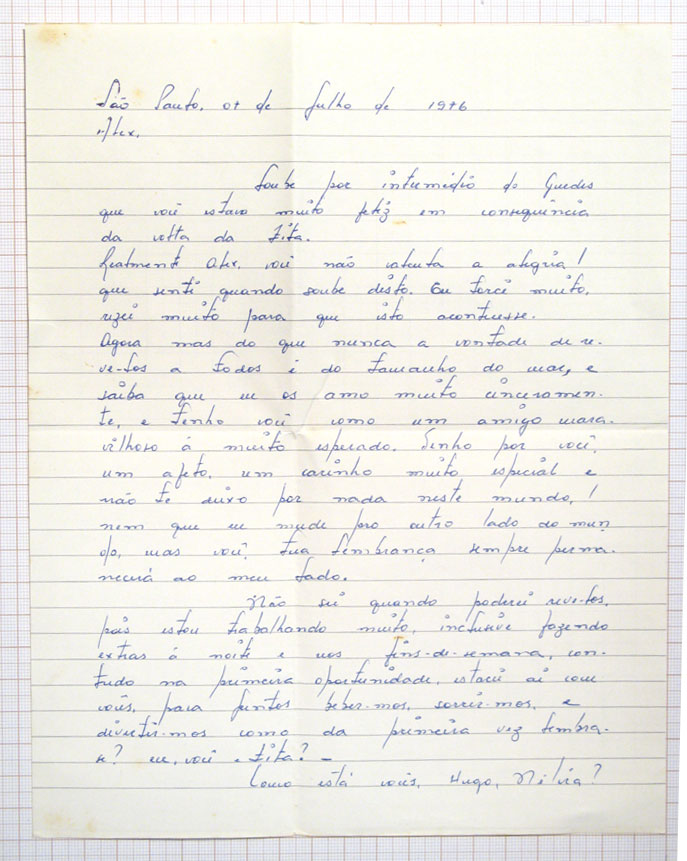 São Paulo, 07 de Julho de 1976
Alex,
Soube por intermédio do Guedes
que você estava muito feliz em consequência
da volta da Zita.
Realmente Alex, você não calcula a alegria!
que senti quando soube disto. Eu torci muito,
rezei muito para que isto acontecesse.
Agora mas do que nunca a vontade de re-
ve-los a todos é do tamanho do mar, e
saiba que eu os amo muito sinceramen-
te, e tenho você como um amigo mara-
vilhoso á muito esperado. Tenho por você,
um afeto, um carinho muito especial e
não te deixo por nada neste mundo, !
nem que eu mude pro outro lado do mun
do, mas você, tua lembrança sempre perma-
necerá ao meu lado.
Não sei quando poderei reve-los,
pois estou trabalhando muito, inclusive fazendo
extras á noite e nos fins-de-semana, con-
tudo na primeira oportunidade, estarei ai com
vocês, para juntos beber-mos, sorrir-mos, e
divertir-mos como da primeira vez lembra-
se? eu, você e Zita? -
Como está vocês, Hugo, Nilvia?